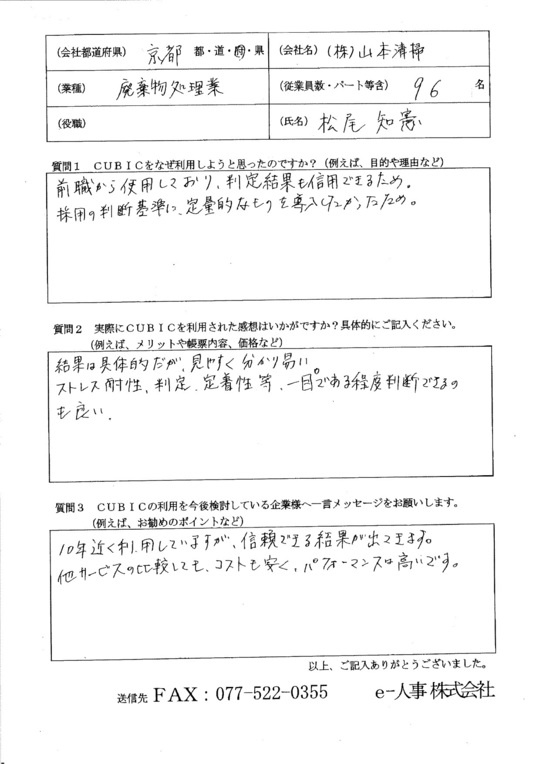 (会社都道府県) 京都 都・道・府・県 (会社名) (株)山本清掃
(業種) 廃棄物処理業 (従業員数・パート等含) 96 名
(役職) (氏名) 松尾 知憲
質問1 CUBICをなぜ利用しようと思ったのですか?(例えば、目的や理由など)
前職から使用しており、判定結果も信用できるため。
採用の判断基準に、定量的なものを導入したかったため。
質問2 実際にCUBICを利用された感想はいかがですか?具体的にご記入ください。
(例えば、メリットや帳票内容、価格など)
結果は具体的だが、見やすく分かり易い。
ストレス耐性、判定、定着性等、一目である程度判断できるの
も良い。
質問3 CUBICの利用を今後検討している企業様へ一言メッセージをお願いします。
(例えば、お勧めのポイントなど)
10年近く利用していますが、信頼できる結果が出てきます。
他サービスの比較しても、コストも安く、パフォーマンスは高いです。
以上、ご記入ありがとうございました。
送信先 FAX:077-522-0355 e-人事株式会社